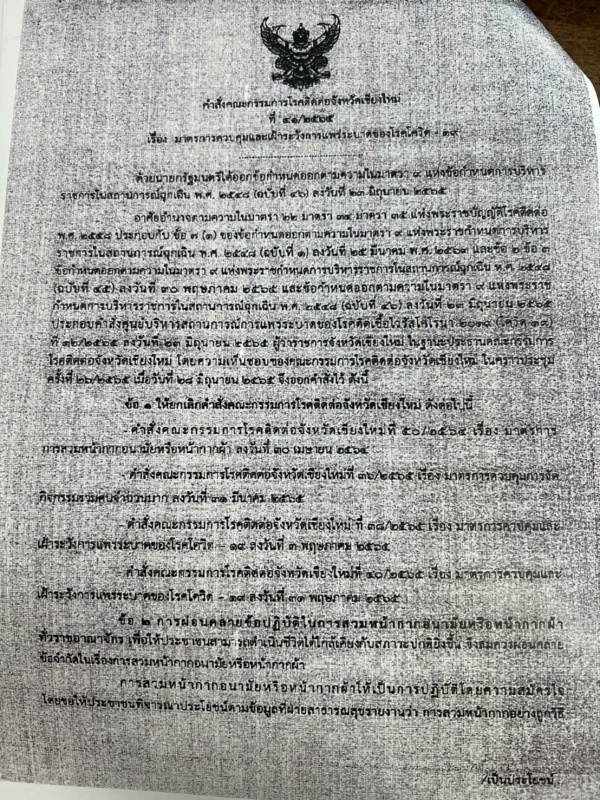 คำสั่งคณะกรรมการโรคติดต่อจังหวัดเชียงใหม่
ที่ ๔๑/๒๕๖๕
เรื่อง มาตรการควบคุมและเฝ้าระวังการแพร่ระบาดของโรคโควิด - ๑๙
ด้วยนายกรัฐมนตรีได้ออกข้อกำหนดออกตามความในมาตรา ๙ แห่งข้อกำหนดการบริหาร
ราชการในสถานการณ์ฉุกเฉิน พ.ศ. ๒๕๔๘ (ฉบับที่ ๔๖) ลงวันที่ ๒๓ มิถุนายน ๒๕๖๕
อาศัยอำนาจตามความในมาตรา ๒๒ มาตรา ๓๔ มาตรา ๓๕ แห่งพระราชบัญญัติโรคติดต่อ
พ.ศ. ๒๕๕๘ ประกอบกับ ข้อ ๓ (๑) ของข้อกำหนดออกตามความในมาตรา ๙ แห่งพระราชกำหนดการบริหาร
ราชการในสถานการณ์ฉุกเฉิน พ.ศ. ๒๕๔๘ (ฉบับที่ ๑) ลงวันที่ ๒๕ มีนาคม พ.ศ. ๒๕๖๓ และข้อ ๒ ข้อ ๓
ข้อกำหนดออกตามความในมาตรา ๙ แห่งพระราชกำหนดการบริหารราชการในสถานการณ์ฉุกเฉิน พ.ศ. ๒๕๔๘
(ฉบับที่ ๔๕) ลงวันที่ ๓๐ พฤษภาคม ๒๕๖๕ และข้อกำหนดออกตามความในมาตรา ๙ แห่งพระราช
กำหนดการบริหารราชการในสถานการณ์ฉุกเฉิน พ.ศ. ๒๕๔๘ (ฉบับที่ ๔๖) ลงวันที่ ๒๓ มิถุนายน ๒๕๖๕
ประกอบคำสั่งศูนย์บริหารสถานการณ์การแพร่ระบาดของโรคติดเชื้อไวรัสโคโรนา ๒๐๑๙ (โควิด-๑๙)
ที่ ๑๖/๒๕๖๕ ลงวันที่ ๒๓ มิถุนายน ๒๕๖๕ ผู้ว่าราชการจังหวัดเชียงใหม่ ในฐานะประธานคณะกรรมการ
โรคติดต่อจังหวัดเชียงใหม่ โดยความเห็นชอบของคณะกรรมการโรคติดต่อจังหวัดเชียงใหม่ ในคราวประชุม
ครั้งที่ ๒๖/๒๕๖๕ เมื่อวันที่ ๒๘ มิถุนายน ๒๕๖๕ จึงออกคำสั่งไว้ ดังนี้
ข้อ ๑ ให้ยกเลิกคำสั่งคณะกรรมการโรคติดต่อจังหวัดเชียงใหม่ ดังต่อไปนี้
- คำสั่งคณะกรรมการโรคติดต่อจังหวัดเชียงใหม่ที่ ๕๐/๒๕๖๔ เรื่อง มาตรการ
การสวมหน้ากากอนามัยหรือหน้ากากผ้า ลงวันที่ ๓๐ เมษายน ๒๕๖๔
- คำสั่งคณะกรรมการโรคติดต่อจังหวัดเชียงใหม่ที่ ๓๖/๒๕๖๕ เรื่อง มาตรการควบคุมการจัด
กิจกรรมรวมคนจำนวนมาก ลงวันที่ ๓๑ มีนาคม ๒๕๖๕
- คำสั่งคณะกรรมการโรคติดต่อจังหวัดเชียงใหม่ ที่ ๓๘/๒๕๖๕ เรื่อง มาตรการควบคุมและ
เฝ้าระวังการแพร่ระบาดของโรคโควิด – ๑๙ ลงวันที่ ๓ พฤษภาคม ๒๕๖๕
- คำสั่งคณะกรรมการโรคติดต่อจังหวัดเชียงใหม่ที่ ๔๐/๒๕๖๕ เรื่อง มาตรการควบคุมและ
เฝ้าระวังการแพร่ระบาดของโรคโควิด – ๑๙ ลงวันที่ ๓๑ พฤษภาคม ๒๕๖๕
ข้อ ๒ การผ่อนคลายข้อปฏิบัติในการสวมหน้ากากอนามัยหรือหน้ากากผ้า
ทั่วราชอาณาจักร เพื่อให้ประชาชนสามารถดำเนินชีวิตได้ใกล้เคียงกับสภาวะปกติยิ่งขึ้น จึงสมควรผ่อนคลาย
ข้อจำกัดในเรื่องการสวมหน้ากากอนามัยหรือหน้ากากผ้า
การสวมหน้ากากอนามัยหรือหน้ากากผ้าให้เป็นการปฏิบัติโดยความสมัครใจ
โดยขอให้ประชาชนพิจารณาประโยชน์ตามข้อมูลที่ฝ่ายสาธารณสุขรายงานว่า การสวมหน้ากากอย่างถูกวิธี
/เป็นประโยชน์...